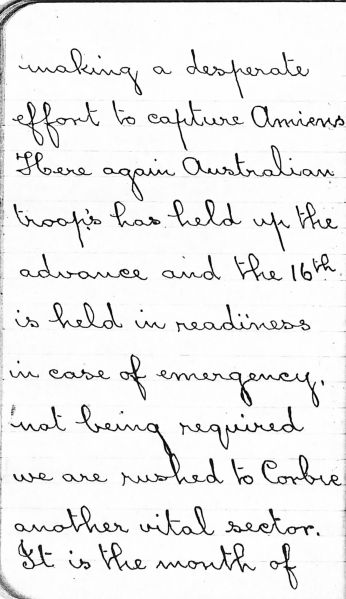 making a desperate
effort to capture Amiens
Here again Australian
troop's has held up the
advance and the 16th
is held in readiness
in case of emergency.
not being required
we are rushed to Corbie
another vital sector.
It is the month of